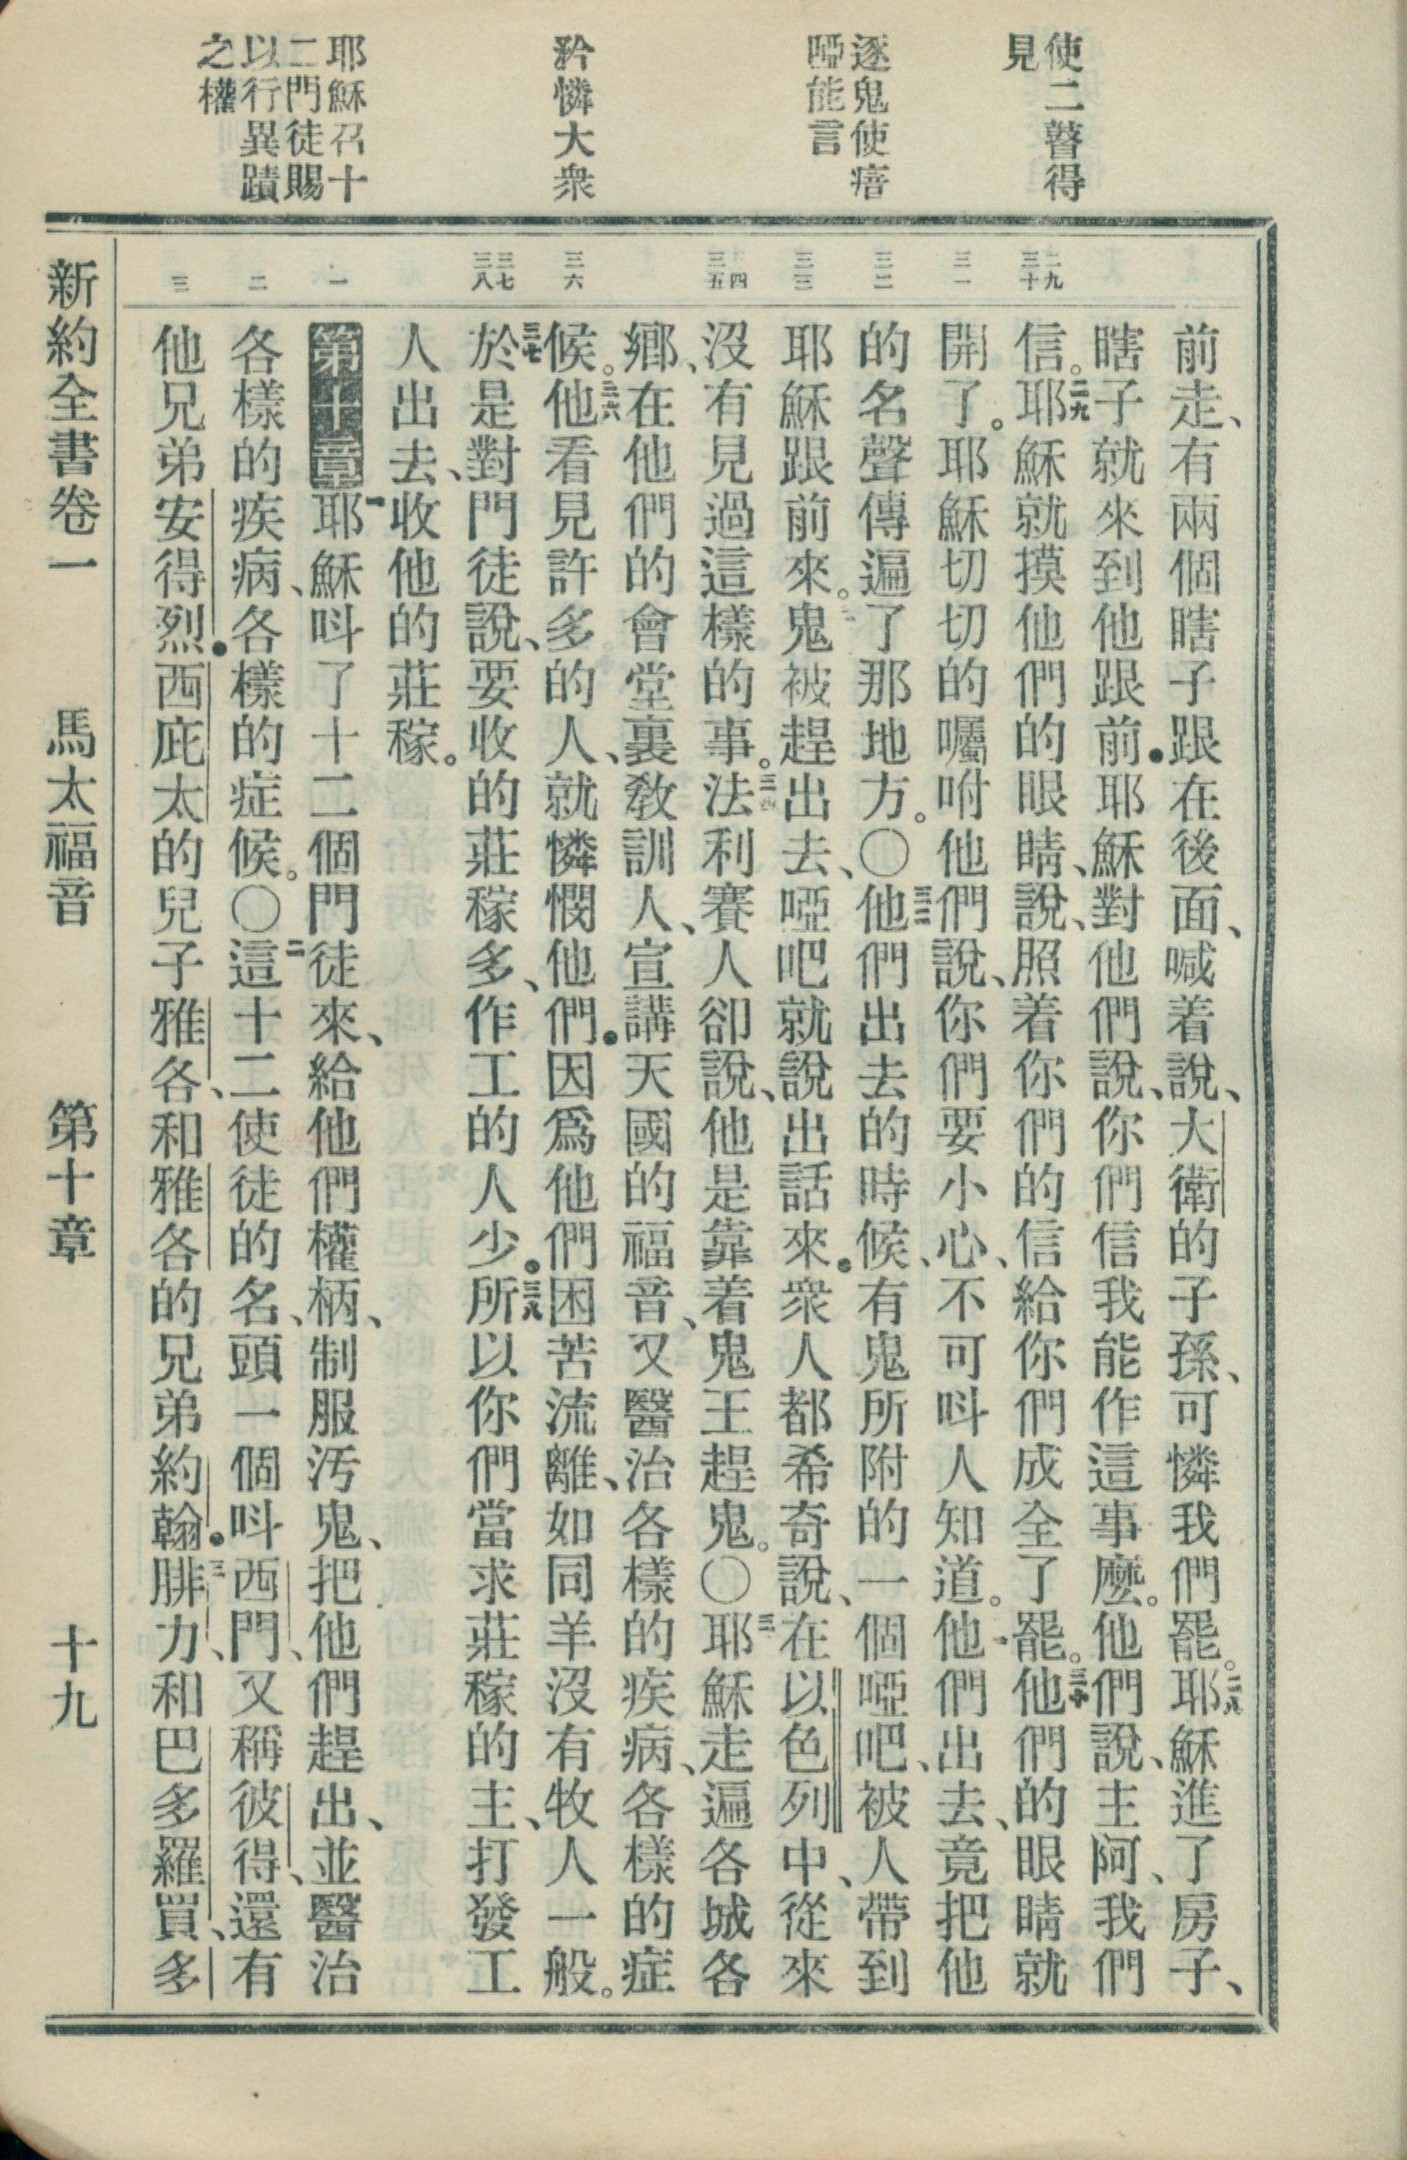 使二瞽得
見
逐鬼使瘖
啞能言
矜憐大衆
耶穌召十
二門徒賜
以行異蹟
之權
二九
三十
三一
三二
三三
三四
三五
三六
三七
三八
一
二
三
前走、有兩個瞎子跟在後面、喊着說、大衛的子孫、可憐我們罷。二八耶穌進了房子、
瞎子就來到他跟前．耶穌對他們說、你們信我能作這事麼。他們說、主阿、我們
信。二九耶穌就摸他們的眼睛、說、照着你們的信給你們成全了罷。三十他們的眼睛就
開了。耶穌切切的囑咐他們說、你們要小心、不可呌人知道。三一他們出去、竟把他
的名聲傳遍了那地方。〇三二他們出去的時候、有鬼所附的一個啞吧、被人帶到
耶穌跟前來。三三鬼被趕出去、啞吧就說出話來．衆人都希奇說、在以色列中、從來
沒有見過這樣的事。三四法利賽人卻說、他是靠着鬼王趕鬼。〇三五耶穌走遍各城各
鄉、在他們的會堂裏教訓人、宣講天國的福音、又醫治各樣的疾病、各樣的症
候。三六他看見許多的人、就憐憫他們．因爲他們困苦流離、如同羊沒有牧人一般。
三七於是對門徒說、要收的莊稼多、作工的人少．三八所以你們當求莊稼的主、打發工
人出去、收他的莊稼。
第十章一耶穌呌了十二個門徒來、給他們權柄、制服汚鬼、把他們趕出、並醫治
各樣的疾病、各樣的症候。〇二這十二使徒的名、頭一個呌西門、又稱彼得、還有
他兄弟安得烈．西庇太的兒子雅各、和雅各的兄弟約翰．三腓力、和巴多羅買、多
新約全書卷一　馬太福音　第十章　十九